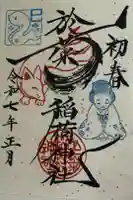 初春
於菜稲荷神社
令和七年正月